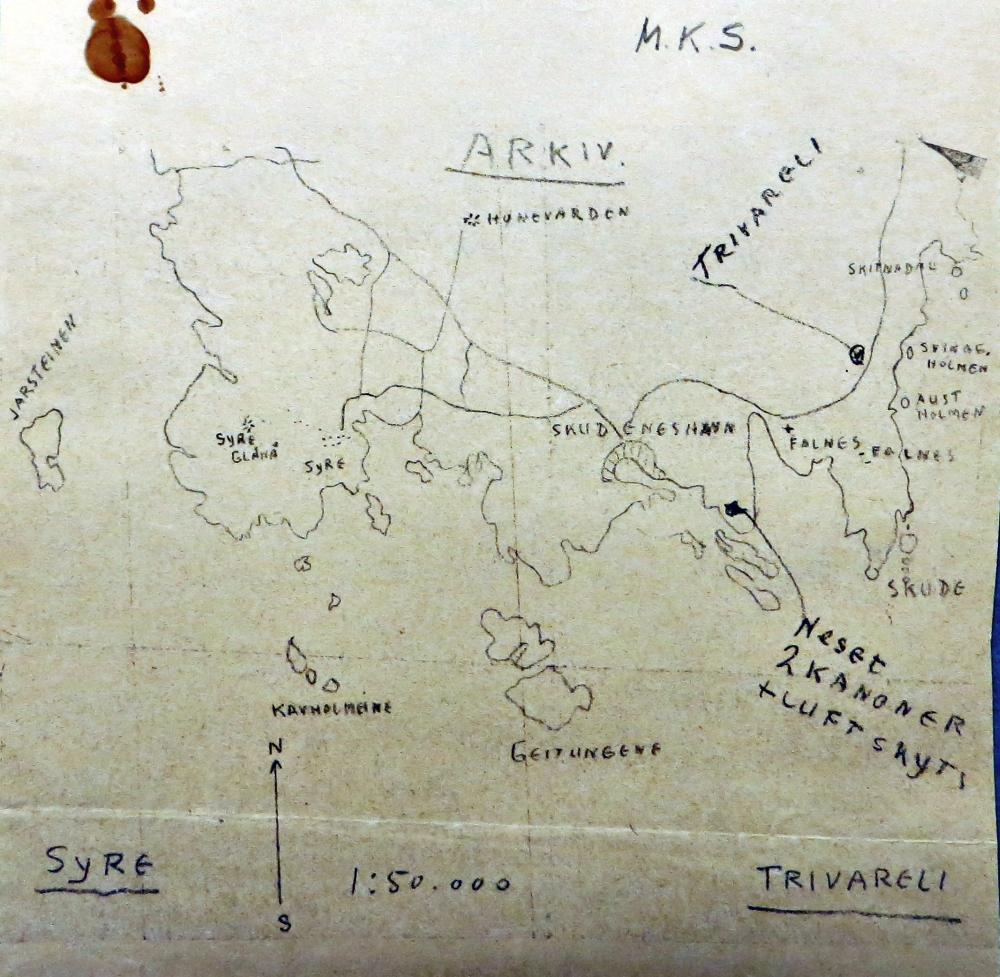 M.K.S.
ARKIV.
HUNEVARDEN
TRIVARELI
JARSTEINEN
AUST
HOLMEN
SYRE
SYRE
SKUDENESHAVN
FALNES
FALNES
SKUDE
Neset
2 KANONER
+ LUFTSKYTS
KAVHOLMENE
GEITUNGENE
N
S
SYRE
1:50.000
TRIVARELI